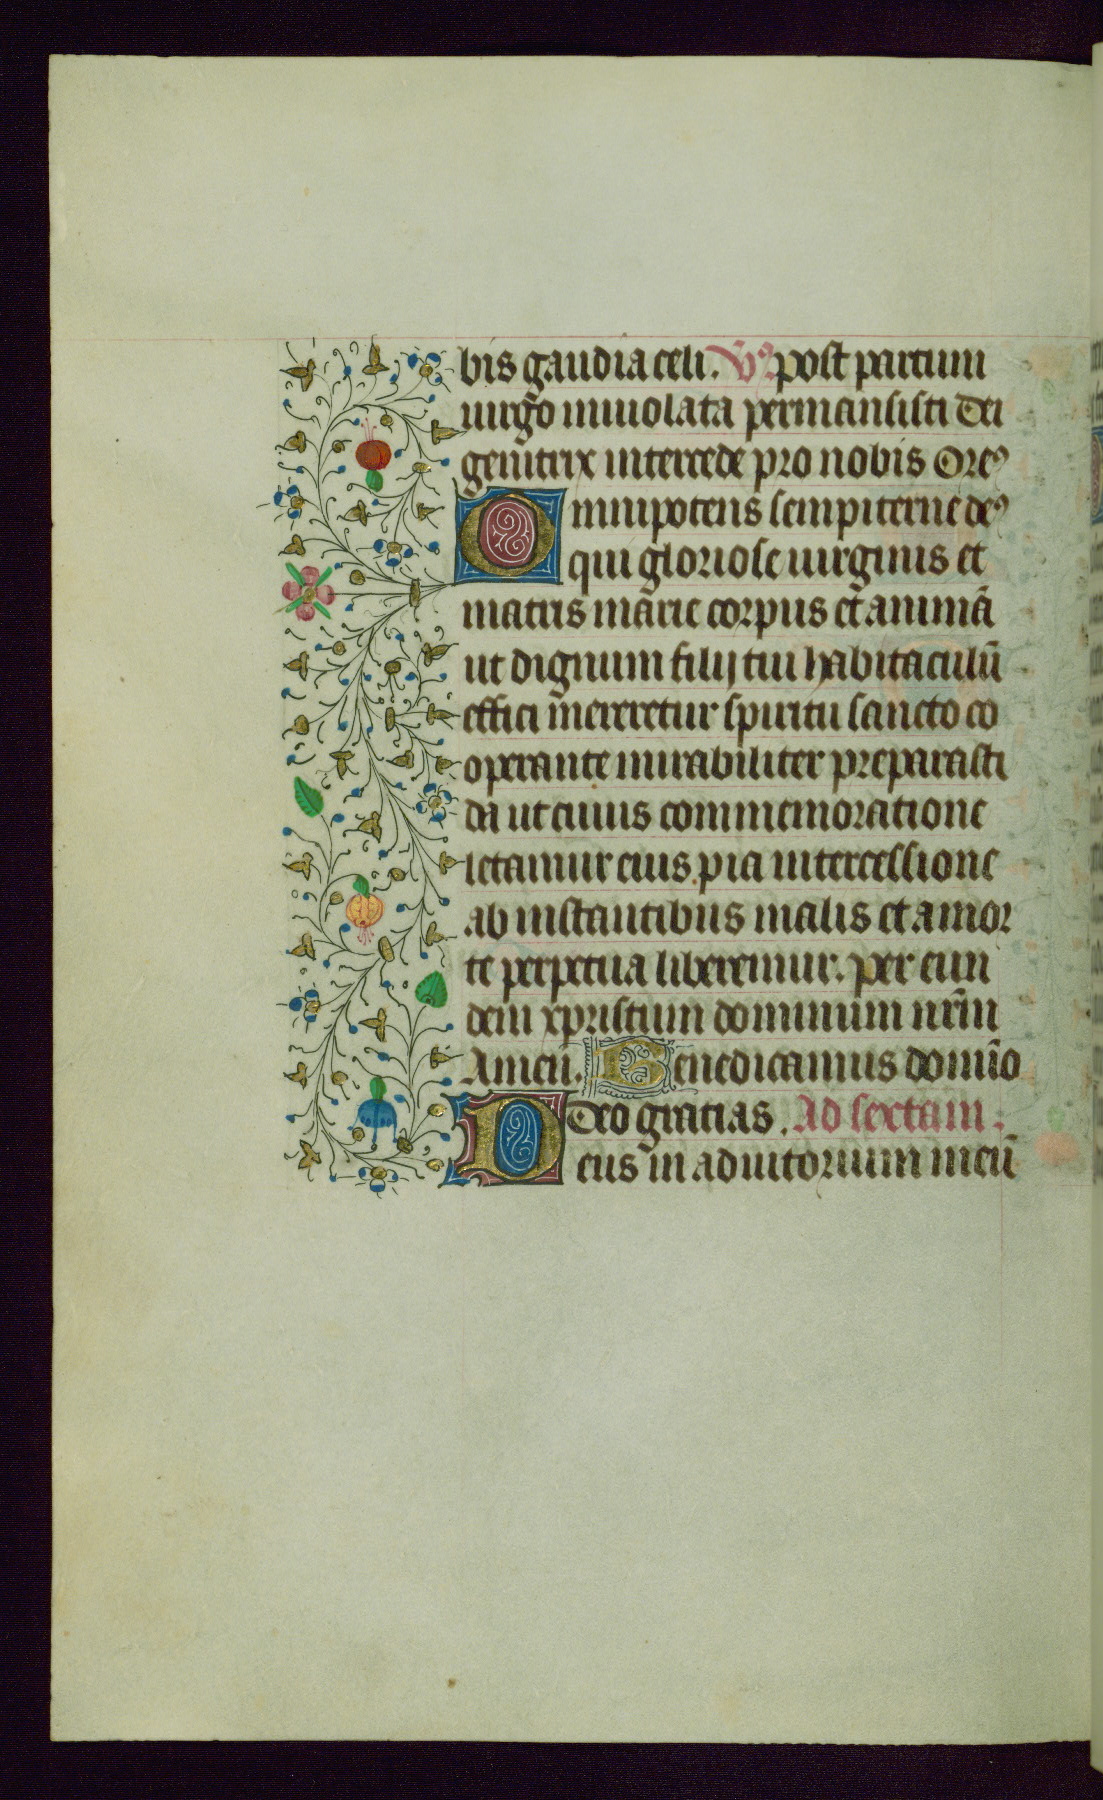 bis gaudia celi. Vs. post partum
uirgo inuiolata permansisti Dei
genitrix intercede pro nobis Oreꝰ
Omnipotens sempiterne deꝰ
qui gloriose uirginis et
matris marie corpus et animā
ut dignum filij tui habitaculū
effici mereretur spiritu sancto co
operante mirabiliter preparasti
da ut cuius commemoratione
letamur eius pia intercessione
ab instantibus malis et a mor
te perpetua liberemur. per eun
dem xpristum dominum nrm̄
Amen. Benedicamus domīo
Deo gratias. Ad sextam.
Deus in adiutorium meū